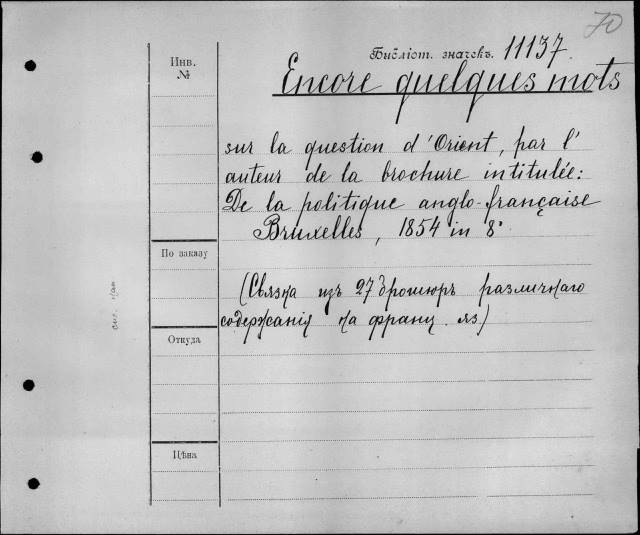 70
Библіот. значекъ. 11137.
Инв.
№
Encore quelques mots
sur la question d'Orient, par l'
auteur de la brochure intitulée:
De la politique anglo-française
Bruxelles, 1854 in 8°
По заказу
(Связка изъ 27 брошюръ различнаго
содержанія на франц. яз)
Откуда
Цѣна